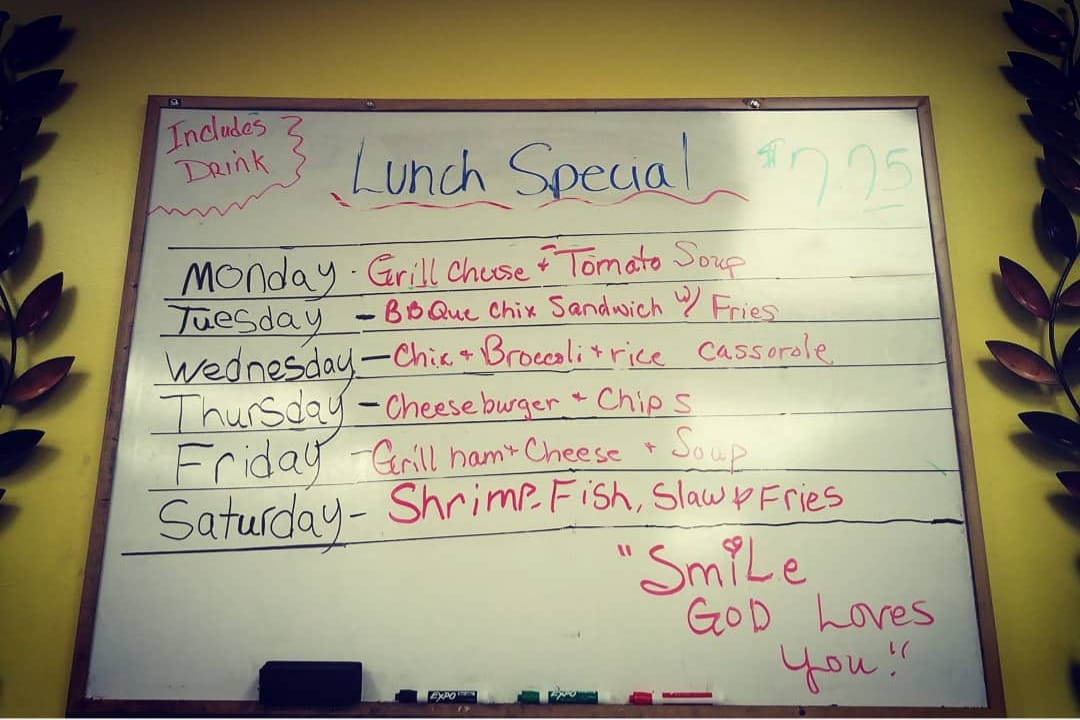 Includes
Drink
Lunch Special
$7.25
Monday - Grill Cheese & Tomato Soup
Tuesday - BBQue Chix Sandwich w/ Fries
Wednesday - Chix + Broccoli + rice Cassorole
Thursday - Cheeseburger + Chips
Friday - Grill ham + Cheese + Soup
Saturday - Shrimp - Fish, Slaw & Fries
"Smile
GOD Loves
you!"
EXPO
EXPO